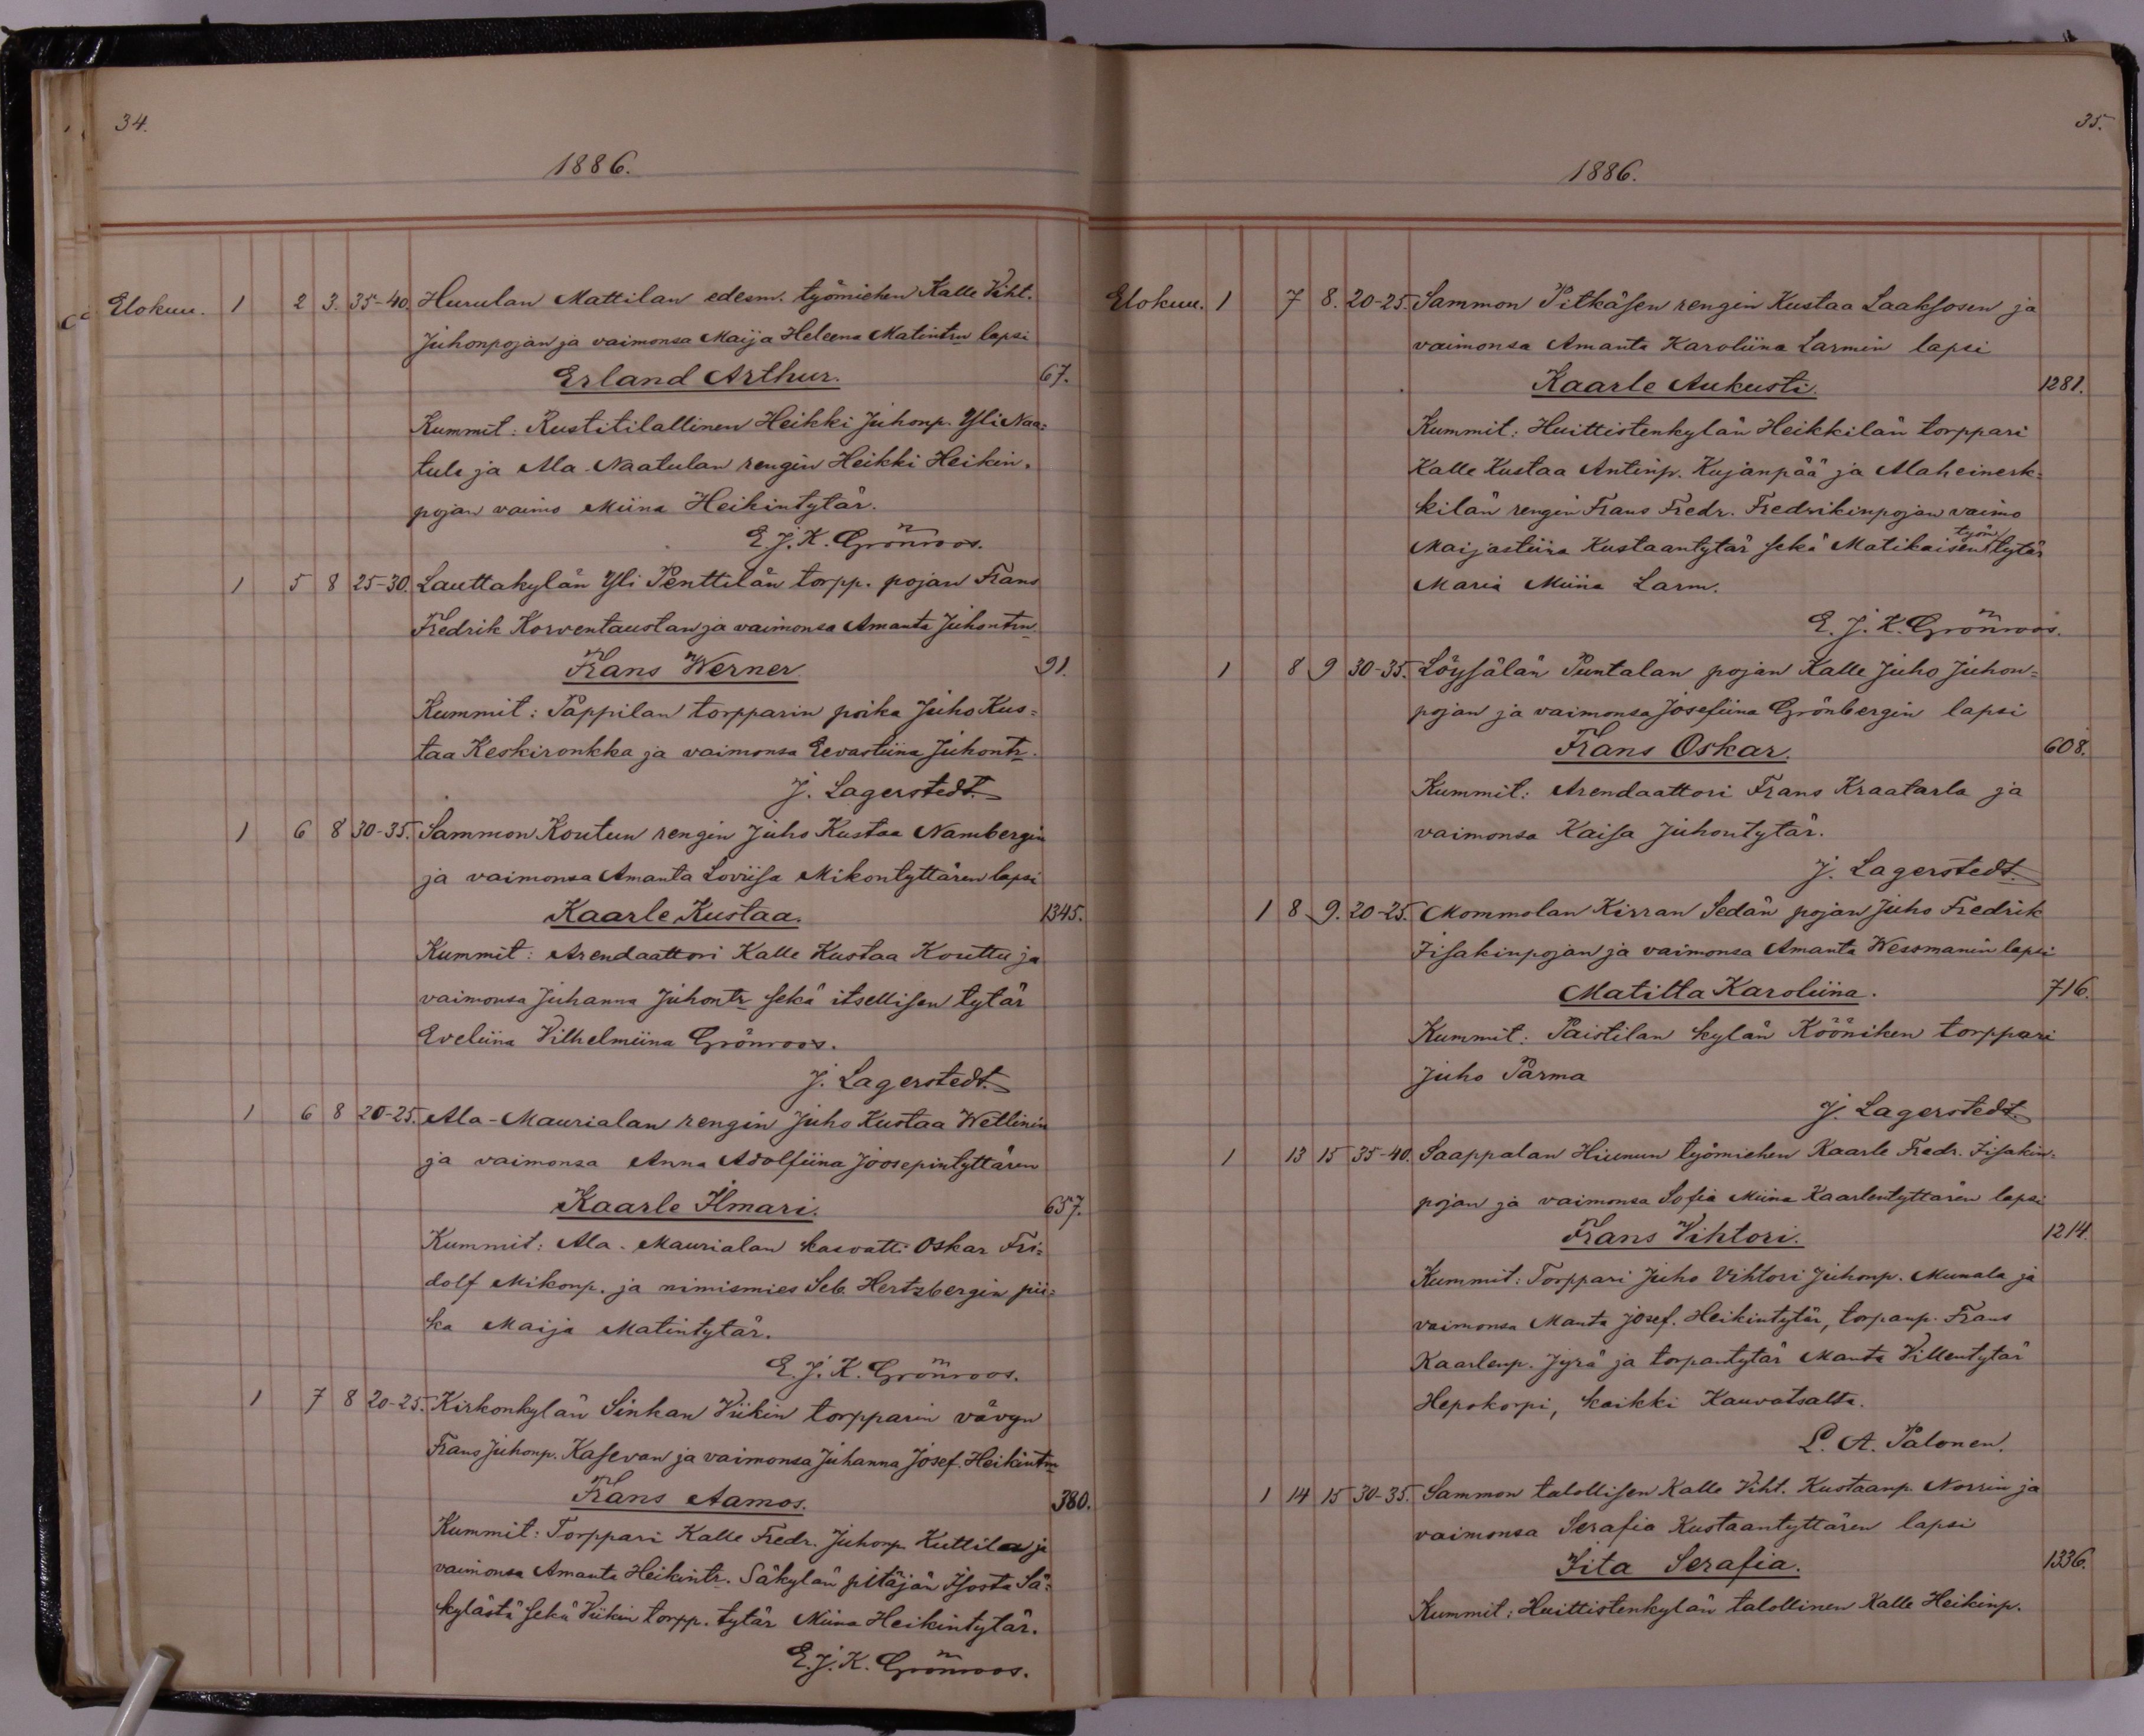 34.
1886.
Elokuu. 1 2 3. 35-40. Hurulan Mattilan edesm. työmiehen Kalle Viht.
Juhonpojan ja vaimonsa Maija Heleena Matintrn lapsi
Erland Arthur. 67.
Kummit: Rustitilallinen Heikki Juhonp. Yli Naa=
tula ja Ala-Naatulan rengin Heikki Heikin.
pojan vaimo Miina Heikintytär.
E. J. K. Grönroos.
1 5 8 25-30. Lauttakylän Yli Penttilän torpp. pojan Frans
Fredrik Korventaustan ja vaimonsa Amanta Juhontrn
Frans Werner 91.
Kummit: Pappilan torpparin poika Juho Kus=
taa Keskironkka ja vaimonsa Eevastiina Juhontr.
J. Lagerstedt.
1 6 8 30-35. Sammon Koutun rengin Juho Kustaa Nambergin
ja vaimonsa Amanta Loviisa Mikontyttären lapsi
Kaarle Kustaa. 1345.
Kummit: Arendaattori Kalle Kustaa Kouttu ja
vaimonsa Juhanna Juhontr sekä itsellisen tytär
Eveliina Vilhelmiina Grönroos.
J. Lagerstedt.
1 6 8 20-25. Ala-Maurialan rengin Juho Kustaa Wetlinin
ja vaimonsa Anna Adolfiina Joosepintyttären
Kaarle Ilmari. 657.
Kummit: Ala-Maurialan kasvatti Oskar Fri=
dolf Mikonp. ja nimismies Seb. Hertzbergin pii=
ka Maija Matintytär.
E. J. K. Grönroos.
1 7 8 20-25. Kirkonkylän Sinkan Viikin torpparin vävyn
Frans Juhonp. Kasevan ja vaimonsa Juhanna Josef. Heikintrn
Frans Aamos. 380.
Kummit: Torppari Kalle Fredr. Juhonp. Kuttila ja
vaimonsa Amanta Heikintr. Säkylän pitäjän Isosta Sä=
kylästä sekä Viikin torpp. tytär Miina Heikintytär.
E. J. K. Grönroos.
35.
1886.
Elokuu. 1 7 8. 20-25. Sammon Pitkäsen rengin Kustaa Laaksosen ja
vaimonsa Amanta Karoliina Larmin lapsi
Kaarle Aukusti. 1281.
Kummit: Huittistenkylän Heikkilän torppari
Kalle Kustaa Antinp. Kujanpää ja Alaheinerk=
kilän rengin Frans Fredr. Fredrikinpojan vaimo
Maijastiina Kustaantytär sekä Matikaisen työn tytär
Maria Miina Larm.
E. J. K. Grönroos.
1 8 9 30-35. Löysälän Puntalan pojan Kalle Juho Juhon=
pojan ja vaimonsa Josefiina Grönbergin lapsi
Frans Oskar. 608.
Kummit: Arendaattori Frans Kraatarla ja
vaimonsa Kaisa Juhontytär.
J. Lagerstedt.
1 8 9. 20-25. Mommolan Kirran Sedän pojan Juho Fredrik
Iisakinpojan ja vaimonsa Amanta Wessmanin lapsi
Matilta Karoliina. 716.
Kummit: Raistilan kylän Kööniken torppari
Juho Parma
J. Lagerstedt.
1 13 15 35-40. Saappalan Hiunun työmiehen Kaarle Fredr. Iisakin=
pojan ja vaimonsa Sofia Miina Kaarlentyttären lapsi
Frans Vihtori. 1214.
Kummit: Torppari Juho Vihtori Juhonp. Munala ja
vaimonsa Manta Josef. Heikintytär, torpanp. Frans
Kaarlenp. Jyrä ja torpantytär Manta Villentytär
Hepokorpi, kaikki Kauvatsalta.
L. A. Palonen.
1 14 15 30-35. Sammon talollisen Kalle Viht. Kustaanp. Norrin ja
vaimonsa Serafia Kustaantyttären lapsi
Iita Serafia. 1336.
Kummit: Huittistenkylän talollinen Kalle Heikinp.